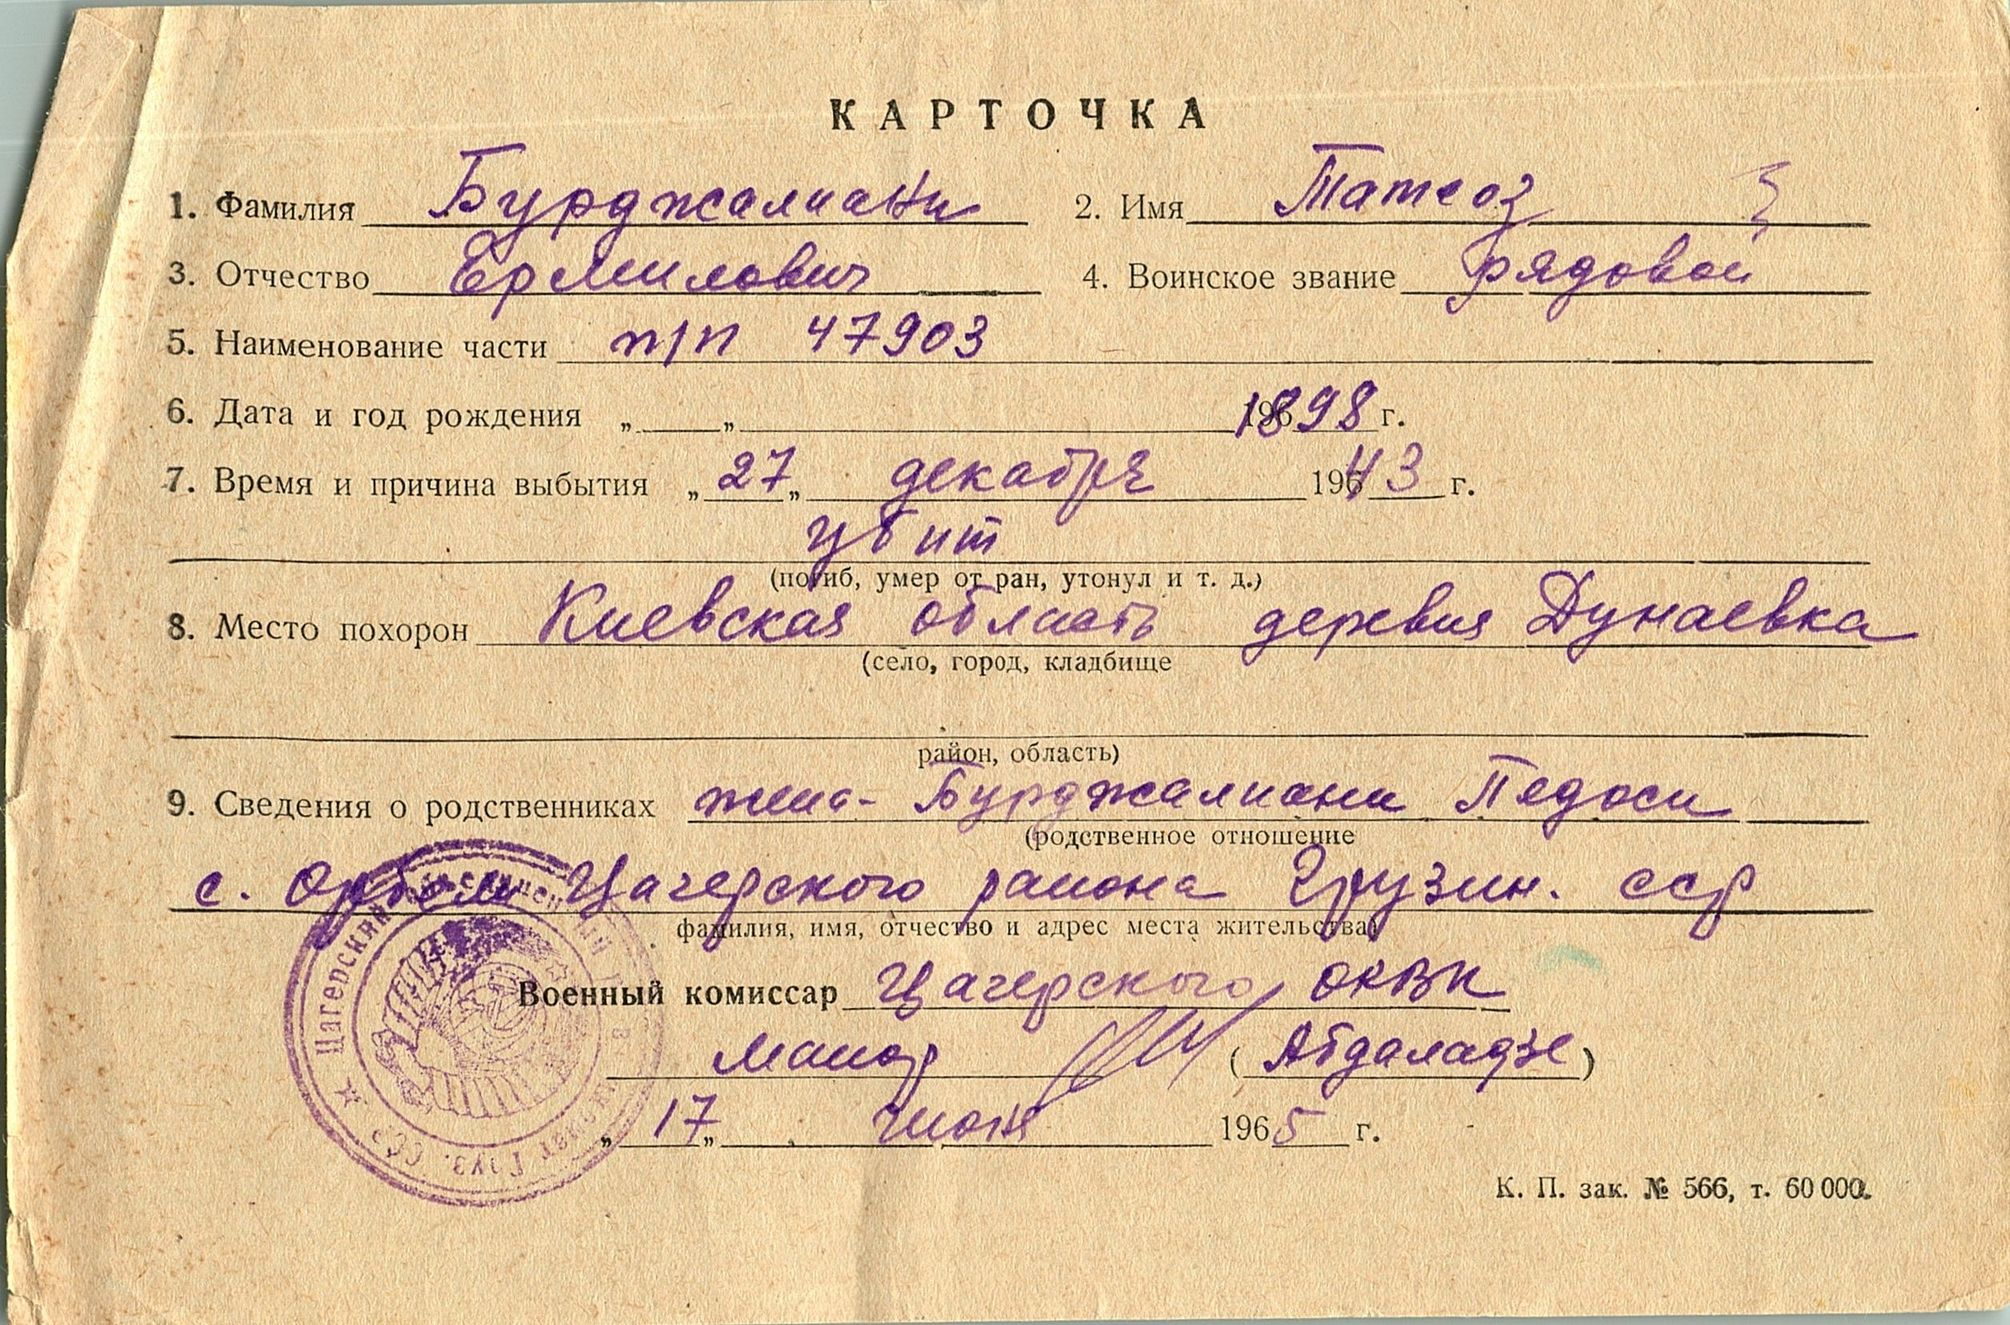 КАРТОЧКА
1. Фамилия Бурджалиани 2. Имя Татеоз
3. Отчество Ермилович 4. Воинское звание рядовой
5. Наименование части п/п 47903
6. Дата и год рождения „ „ 1898 г.
7. Время и причина выбытия „27„ декабря 1943 г.
убит
(погиб, умер от ран, утонул и т. д.)
8. Место похорон Киевская область деревня Дунаевка
(село, город, кладбище
район, область)
9. Сведения о родственниках жена - Бурджалиани Педоси
(родственное отношение
с. Орбели Цагерского района Грузин. сср
фамилия, имя, отчество и адрес места жительства)
Военный комиссар Цагерского ОКВК
Майор (Абдаладзе)
„17„ июня 1965 г.
Цагерский Груз. ССР
К. П. зак. № 566, т. 60 000.